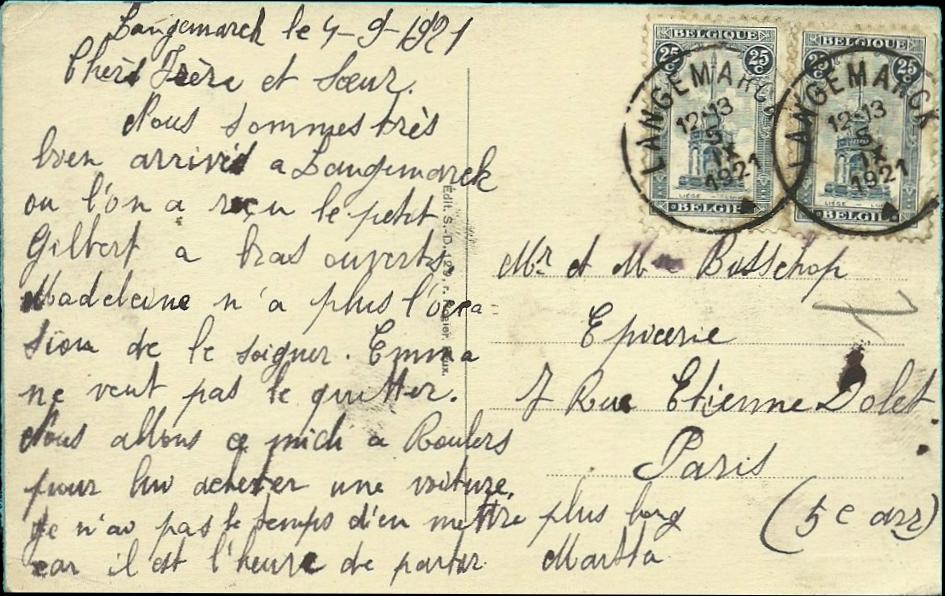 Langemarck le 4-9-1921
Chers Frère et Sœur.
Nous sommes très
bien arrivés a Langemarck
ou l'on a reçu le petit
Gilbert a bras ouverts.
Madeleine n'a plus l'occa
sion de le soigner. Emma
ne veut pas le quitter.
Nous allons a midi a Roulers
pour lui acheter une voiture.
Je n'ai pas le temps d'en mettre plus long
car il est l'heure de partir Martha
Edit. S.-D. 129, r.
BELGIQUE
25 c 25 c
LIÉGE
BELGIË
LANGEMARCK
12-13
5
IX
1921
BELGIQUE
25 c 25 c
LIÉGE
BELGIË
LANGEMARCK
12-13
5
IX
1921
Mr et Mme Bosschop
Epicerie
7 Rue Etienne Dolet
Paris
(5e arr)